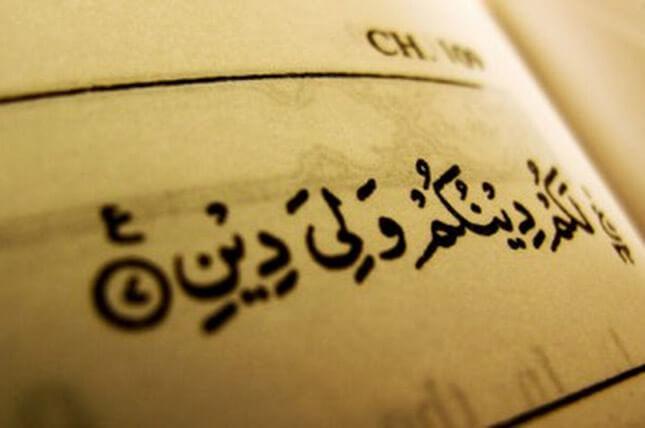 CH. 109
لَكُمْ دِيْنُكُمْ وَلِىَ دِيْنِ ۷ ع